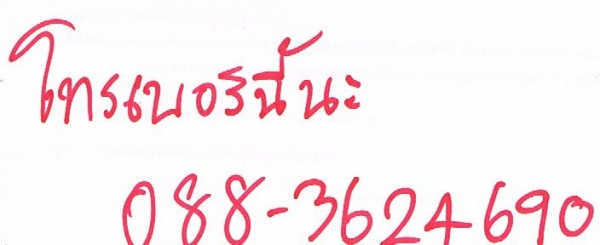 โทรเบอร์นี้นะ
088-3624690